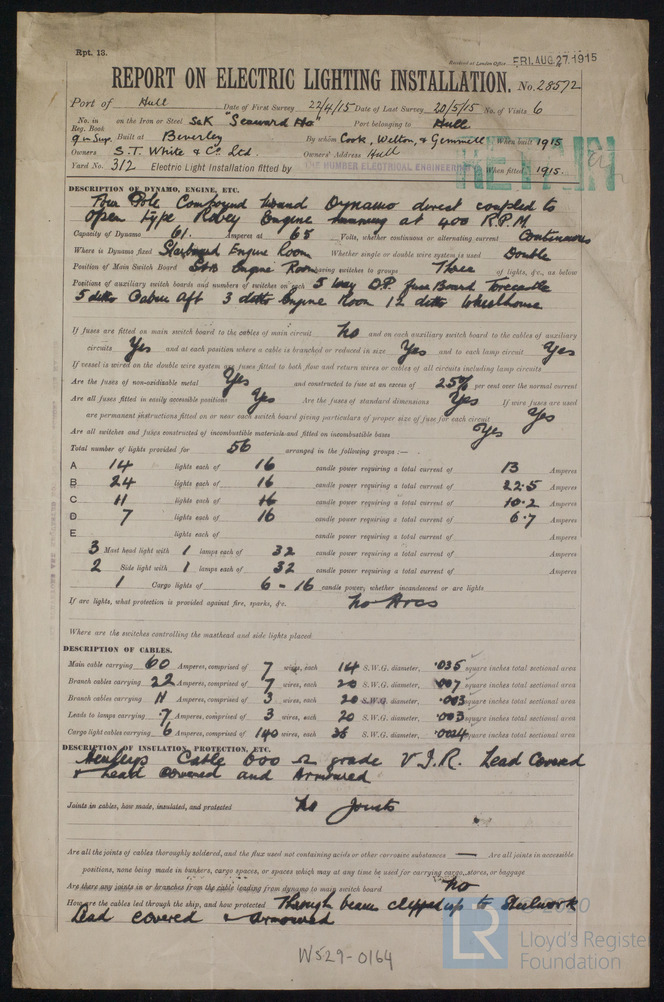 Rpt. 13.
Received at London Office FRI. AUG. 27. 1915
REPORT ON ELECTRIC LIGHTING INSTALLATION. No. 28572
Port of Hull Date of First Survey 22/4/15 Date of Last Survey 20/5/15 No. of Visits 6
No. in Reg. Book on the Iron or Steel S&K "Seaward Ho" Port belonging to Hull
9 in Sup. Built at Beverley By whom Cook, Welton, & Gemmell When built 1915
Owners S.T. White & Co. Ltd. Owners' Address Hull
Yard No. 312 Electric Light Installation fitted by THE HUMBER ELECTRICAL ENGINEER When fitted 1915.
RETAIN
DESCRIPTION OF DYNAMO, ENGINE, ETC.
Four Pole Compound wound Dynamo direct coupled to
Open type Robey Engine running at 400 R.P.M.
Capacity of Dynamo 61. Amperes at 65 Volts, whether continuous or alternating current Continuous
Where is Dynamo fixed Starboard Engine Room Whether single or double wire system is used Double
Position of Main Switch Board Stb Engine Room having switches to groups Three of lights, &c., as below
Positions of auxiliary switch boards and numbers of switches on each 5 way D.P. fuse Board Forecastle
5 ditto Cabin Aft 3 ditto Engine Room 12 ditto Wheelhouse
If fuses are fitted on main switch board to the cables of main circuit No and on each auxiliary switch board to the cables of auxiliary
circuits Yes and at each position where a cable is branched or reduced in size Yes and to each lamp circuit Yes
If vessel is wired on the double wire system are fuses fitted to both flow and return wires or cables of all circuits including lamp circuits
Are the fuses of non-oxidizable metal Yes and constructed to fuse at an excess of 25% per cent over the normal current
Are all fuses fitted in easily accessible positions Yes Are the fuses of standard dimensions Yes If wire fuses are used
are permanent instructions fitted on or near each switch board giving particulars of proper size of fuse for each circuit Yes
Are all switches and fuses constructed of incombustible materials and fitted on incombustible bases Yes
Total number of lights provided for 56 arranged in the following groups :—
A 14 lights each of 16 candle power requiring a total current of 13 Amperes
B 24 lights each of 16 candle power requiring a total current of 22.5 Amperes
C 11 lights each of 16 candle power requiring a total current of 10.2 Amperes
D 7 lights each of 16 candle power requiring a total current of 6.7 Amperes
E lights each of candle power requiring a total current of Amperes
3 Mast head light with 1 lamps each of 32 candle power requiring a total current of Amperes
2 Side light with 1 lamps each of 32 candle power requiring a total current of Amperes
1 Cargo lights of 6 - 16 candle power, whether incandescent or arc lights
If arc lights, what protection is provided against fire, sparks, &c. No Arcs
Where are the switches controlling the masthead and side lights placed
DESCRIPTION OF CABLES.
Main cable carrying 60 Amperes, comprised of 7 wires, each 14 S.W.G. diameter, .035 square inches total sectional area
Branch cables carrying 22 Amperes, comprised of 7 wires, each 20 S.W.G. diameter, .007 square inches total sectional area
Branch cables carrying 11 Amperes, comprised of 3 wires, each 20 S.W.G. diameter, .003 square inches total sectional area
Leads to lamps carrying .7 Amperes, comprised of 3 wires, each 20 S.W.G. diameter, .003 square inches total sectional area
Cargo light cables carrying 6 Amperes, comprised of 140 wires, each 38 S.W.G. diameter, .0024 square inches total sectional area
DESCRIPTION OF INSULATION, PROTECTION, ETC.
Henleys Cable 600 Ω grade V.I.R. Lead Covered
& Lead covered and Armoured
Joints in cables, how made, insulated, and protected No Joints
Are all the joints of cables thoroughly soldered, and the flux used not containing acids or other corrosive substances — Are all joints in accessible
positions, none being made in bunkers, cargo spaces, or spaces which may at any time be used for carrying cargo, stores, or baggage
Are there any joints in or branches from the cable leading from dynamo to main switch board No
How are the cables led through the ship, and how protected Through beams clipped up to Steelwork
Lead covered & Armoured
W529-0164
© 2020
LR
Lloyd's Register
Foundation